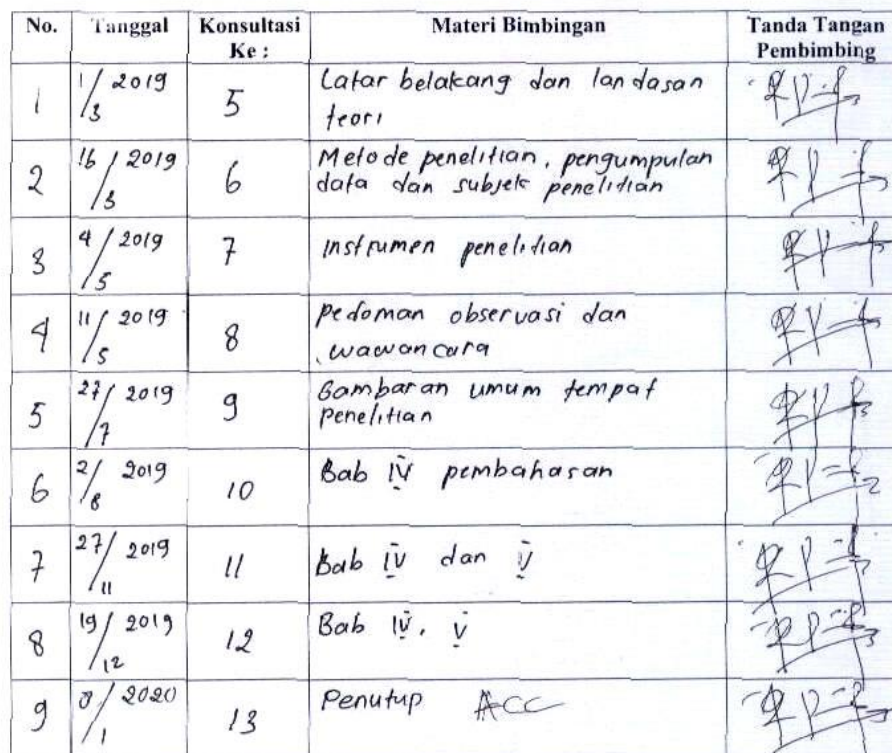 No. Tanggal Konsultasi Ke : Materi Bimbingan Tanda Tangan Pembimbing
1 1/3 2019 5 Latar belakang dan landasan
teori
2 16/3 2019 6 Metode penelitian, pengumpulan
data dan subjek penelitian
3 4/5 2019 7 instrumen penelitian
4 11/5 2019 8 pedoman observasi dan
wawancara
5 27/7 2019 9 Gambaran umum tempat
penelitian
6 2/8 2019 10 Bab IV pembahasan
7 27/11 2019 11 Bab IV dan V
8 19/12 2019 12 Bab IV, V
9 /1 2020 13 Penutup ACC